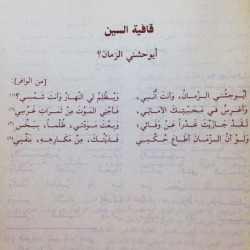 قافية السين
أيوحشني الزمان؟
[من الوافر]:
أيوحشني الزمان، وأنت أنسي، ويظلم لي النهار وأنت شمسي؟(١)
وأغرس في محبتك الأماني، فأجني الموت من ثمرات غرسي(٢)
لقد جازيت غدراً عن وفائي؛ وبعت مودتي، ظلماً، ببخس(٣)
ولو أن الزمان أطاع حكمي فديتك، من مكارهه، بنفسي(٤)